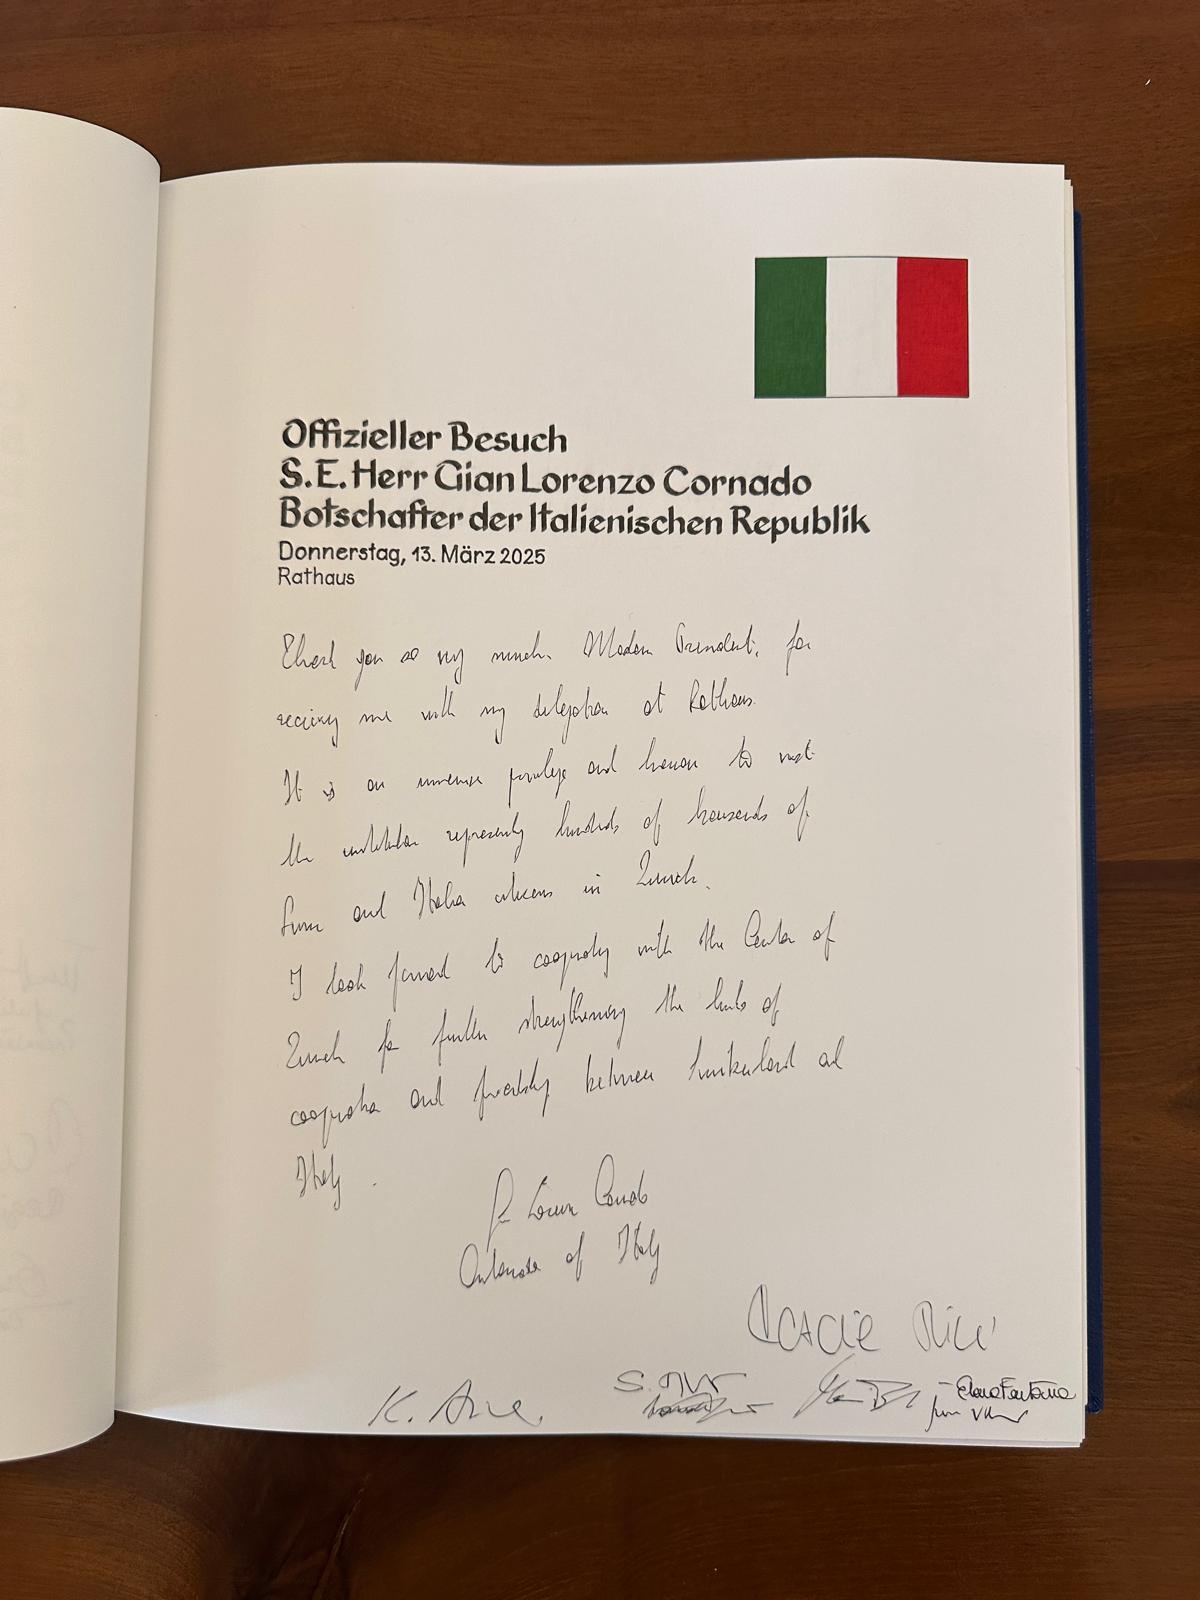 Offizieller Besuch
S.E. Herr Gian Lorenzo Cornado
Botschafter der Italienischen Republik
Donnerstag, 13. März 2025
Rathaus
Thank you so very much, Madam President, for
receiving me with my delegation at Rathaus.
It is an immense privilege and honour to visit
the institution representing hundreds of thousands of
Swiss and Italian citizens in Zurich.
I look forward to cooperating with the Canton of
Zurich for further strengthening the links of
cooperation and friendship between Switzerland and
Italy.
Gian Lorenzo Cornado
Ambassador of Italy
K.
S.
Elena Fontana